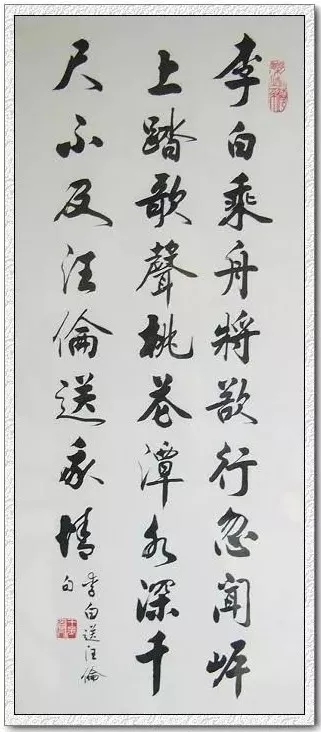 李白乘舟將欲行忽聞岸
上踏歌聲桃花潭水深千
尺不及汪倫送我情
李白送汪倫
句